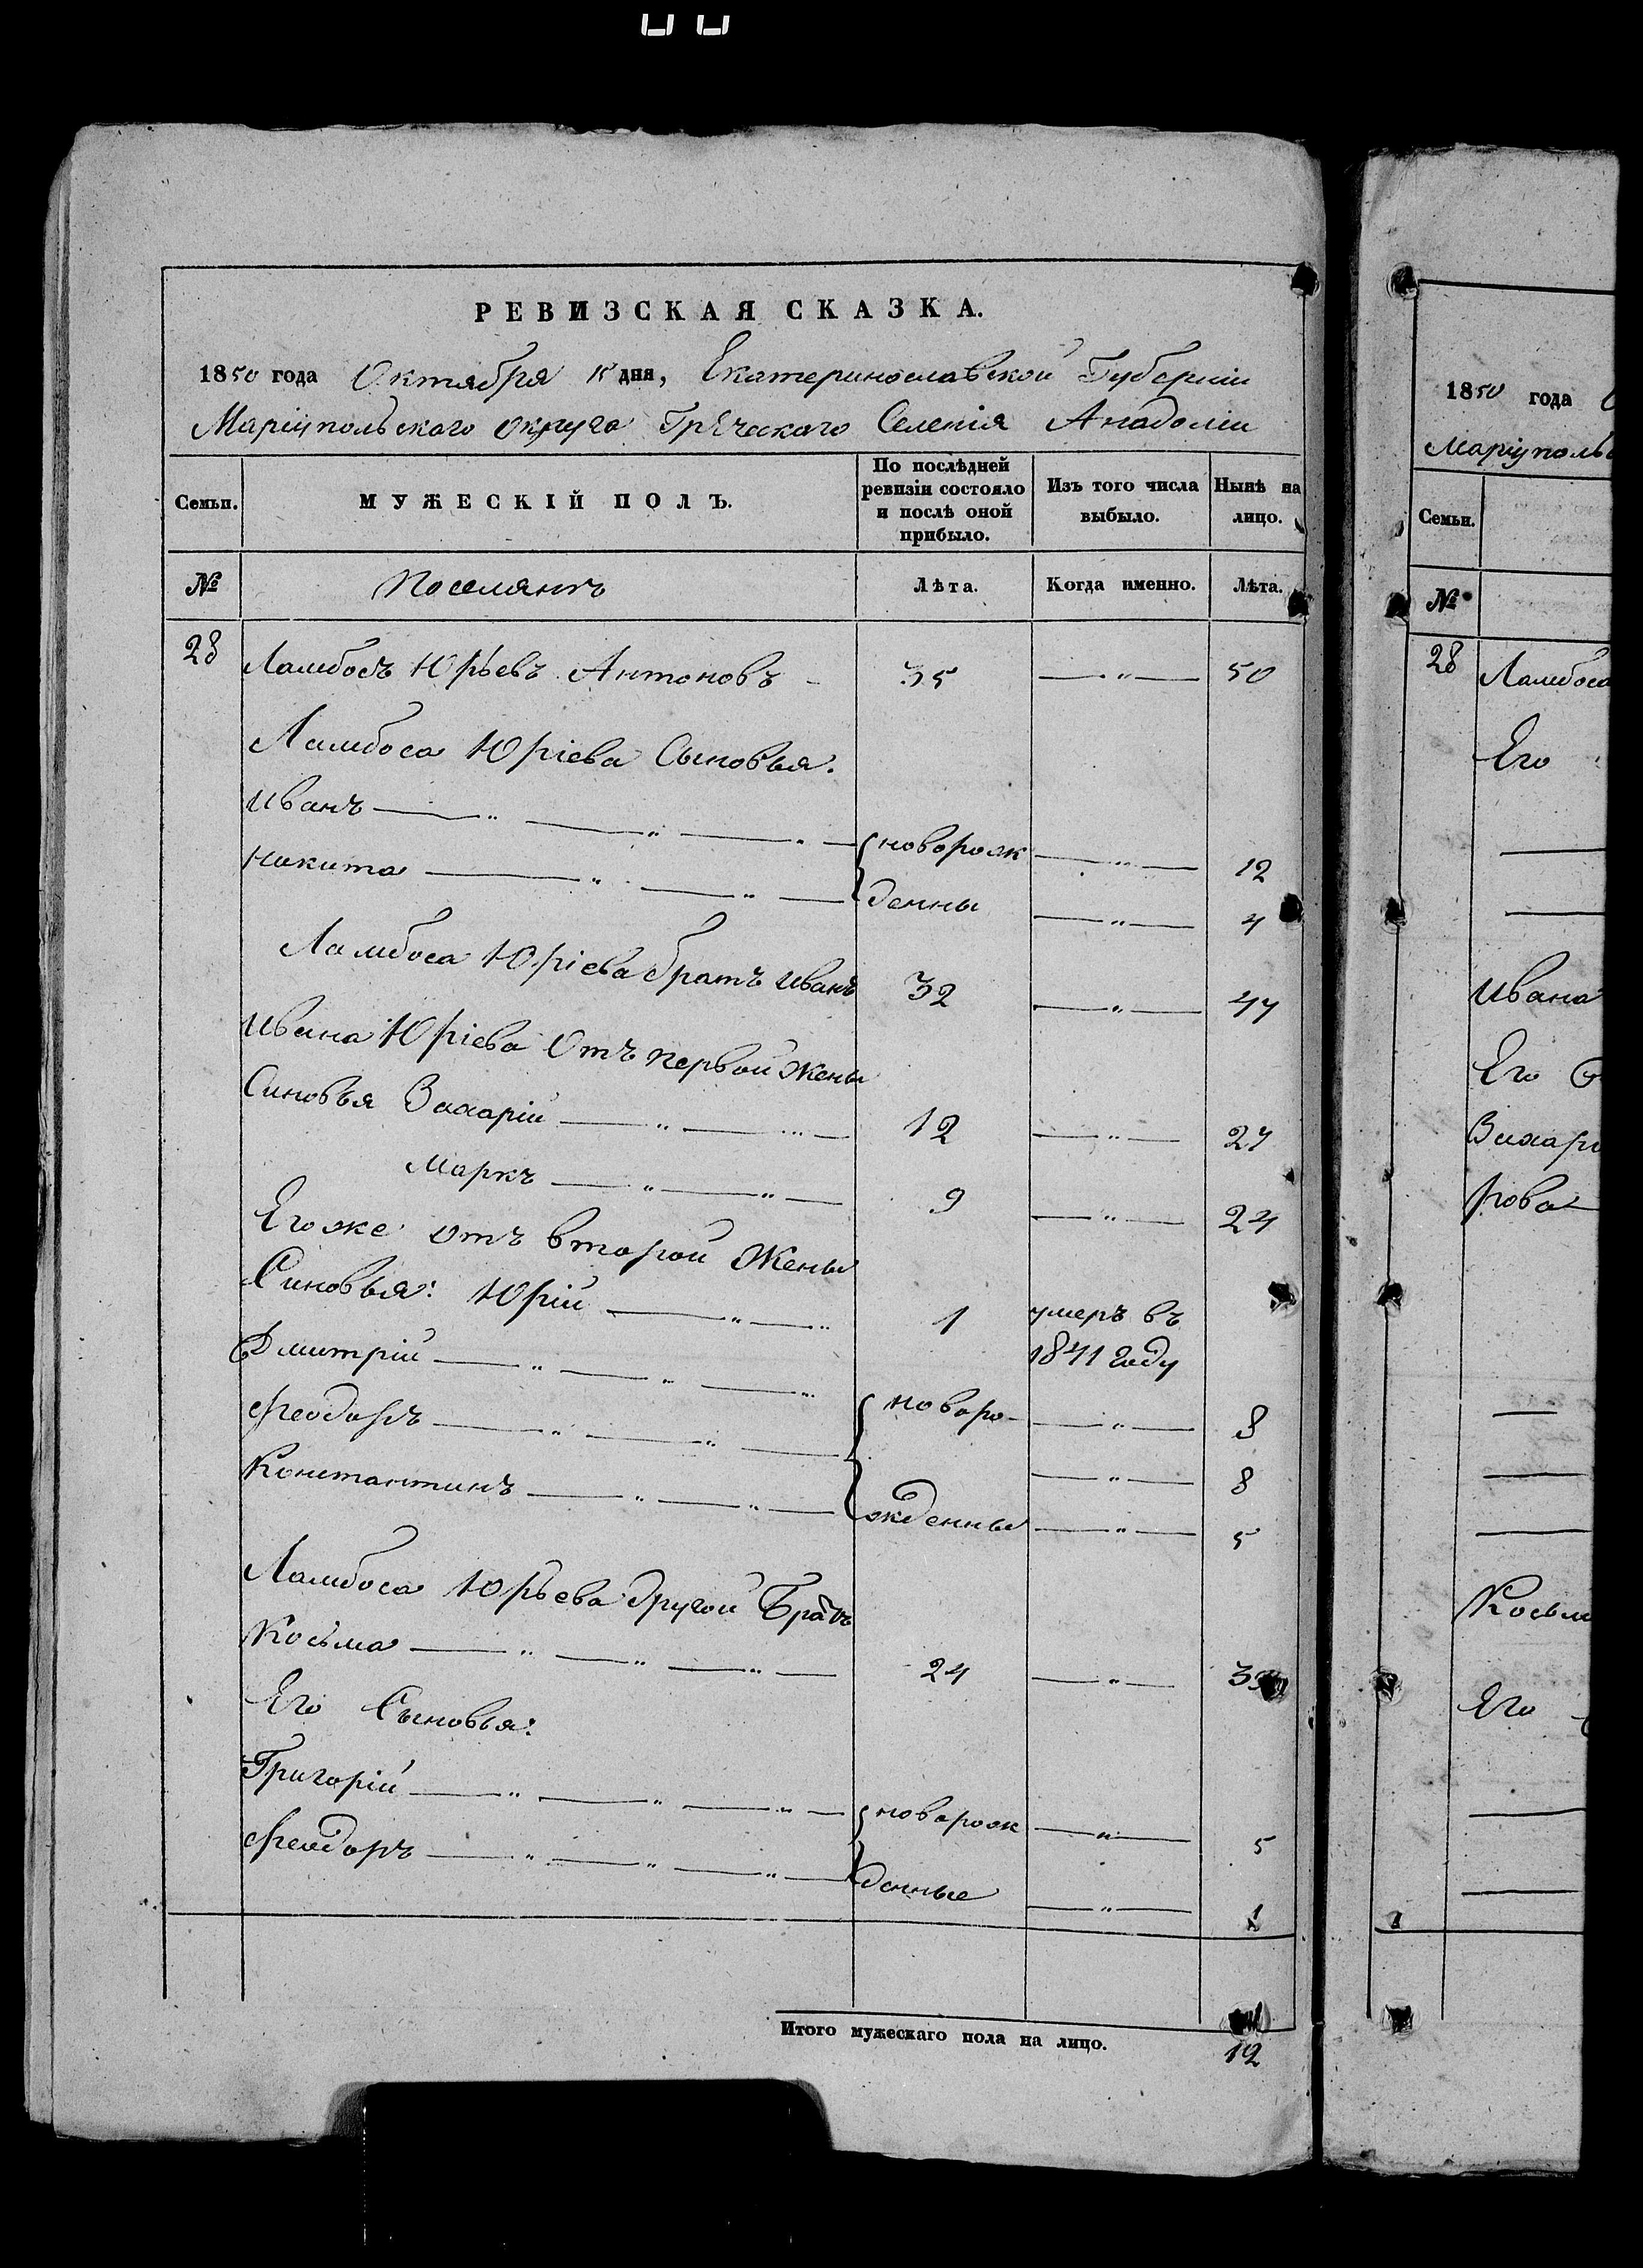 РЕВИЗСКАЯ СКАЗКА.
1850 года Октября 15 дня, Екатеринославской Губерніи
Маріупольского округа Гріческого Селенія Анадоліи
Семьи. МУЖЕСКІЙ ПОЛЪ. По послѣдней ревизіи состояло и послѣ оной прибыло. Изъ того числа выбыло. Нынѣ на лицо.
№ Поселянъ Лѣта. Когда именно. Лѣта.
28 Ламбосъ Юрьевъ Антоновъ 35 —"— 50
Ламбоса Юріева Сыновья.
Иванъ —"—"—"— новорож —"— 12
Никита —"—"— денны —"— 4
Ламбоса Юріева братъ Иванъ 32 —"— 47
Ивана Юріева Отъ первой Жены
Синовья Захарій —"—"— 12 —"— 27
Маркъ —"—"— 9 —"— 24
Его же отъ второй Жены
Синовья: Юрій —"—" 1 умеръ въ
1841 году
Дмитрій —"—"—"
новоро- —"— 8
Феодоръ —"—"— —"— 8
Константинъ —"—"— жденные —"— 5
Ламбоса Юрьева другой Братъ
Косьма —"—"—"— 24 —"— 39
Его Сыновья:
Григорій —"—"—"— новорож —"— 5
Феодоръ —"—"—"— денные —"— 1
Итого мужескаго пола на лицо.
12
1850 года
Маріуполь
Семьи.
№
28 Ламбоса
Его
Ивана
Его
Захарі
рова
Косьм
Его